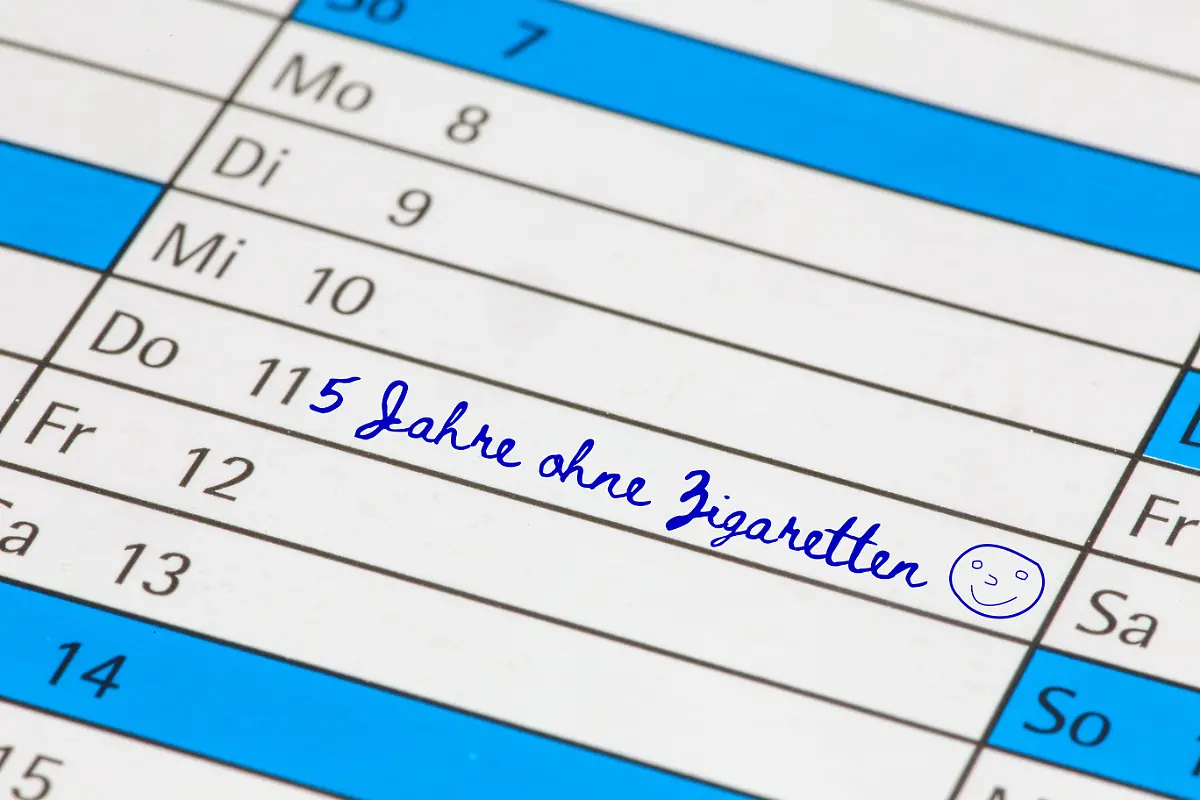 So 7
Mo 8
Di 9
Mi 10
Do 11 5 Jahre ohne Zigaretten
Fr 12
Sa 13
14
15
Fr
Sa
So